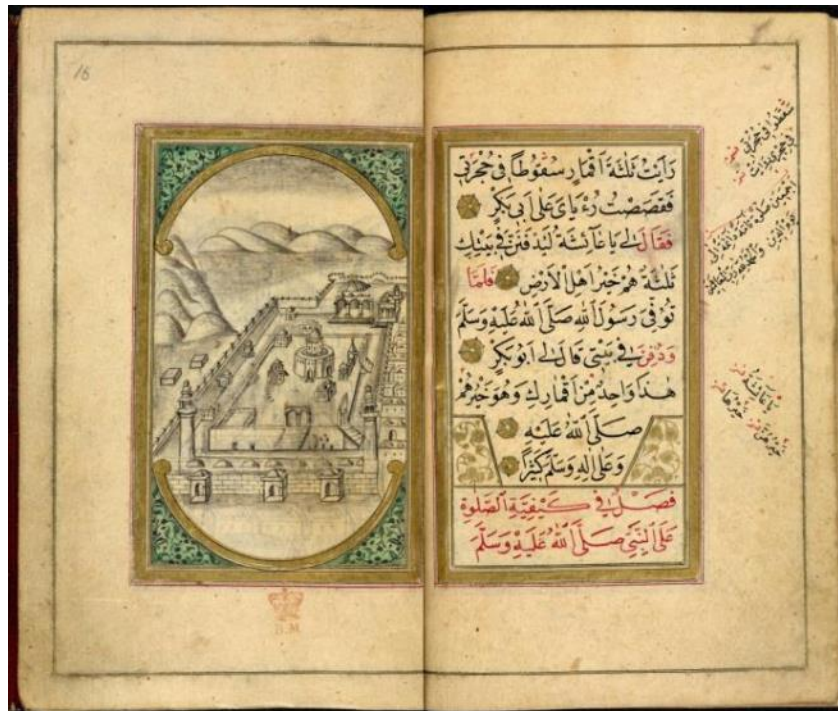 رَأَيْتُ ثَلٰثَةَ اَقْمَارٍ سُقُوطًا فِى حُجْرَتِى
فَقَصَصْتُ رُءْيَاىَ عَلٰى اَبِى بَكْرٍ
فَقَالَ لِى يَا عَآئِشَةُ لَيُدْفَنَنَّ فِى بَيْتِكِ
ثَلٰثَةٌ هُمْ خَيْرُ اَهْلِ الْاَرْضِ فَلَمَّا
تُوُفِّىَ رَسُولُ اللّٰهِ صَلَّى اللّٰهُ عَلَيْهِ وَسَلَّمَ
وَدُفِنَ فِى بَيْتِى قَالَ لِى اَبُو بَكْرٍ
هٰذَا وَاحِدٌ مِنْ اَقْمَارِكِ وَهُوَ خَيْرُهُمْ
صَلَّى اللّٰهُ عَلَيْهِ
وَعَلٰى اٰلِهِ وَسَلَّمَ كَثِيرًا
فَصْلٌ فِى كَيْفِيَّةِ الصَّلٰوةِ
عَلَى النَّبِىِّ صَلَّى اللّٰهُ عَلَيْهِ وَسَلَّمَ
16
B.M